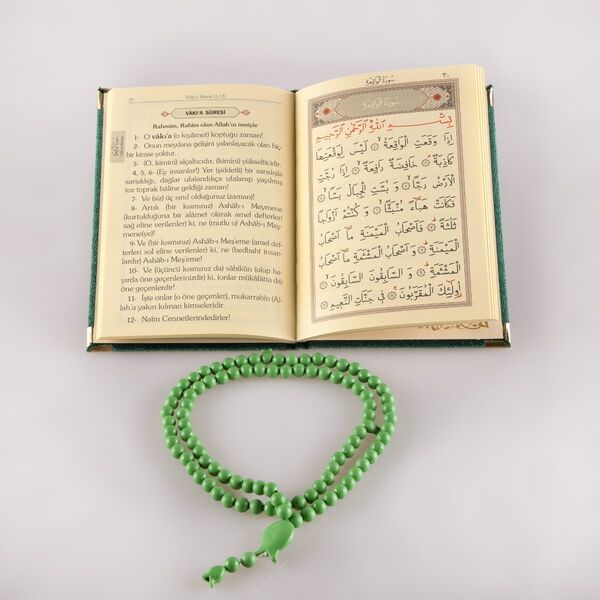 30
Vâkı'a Sûresi (1-12)
VÂKI'A SÛRESİ
Rahmân, Rahîm olan Allah'ın ismiyle
1- O vâkı'a (o kıyâmet) koptuğu zaman!
2- Onun meydana gelişini yalanlayacak olan hiç-
bir kimse yoktur.
3- (O, kimini) alçaltıcıdır, (kimini) yükselticidir.
4, 5, 6- (Ey insanlar!) Yer (şiddetli) bir sarsılışla
sarsıldığı, dağlar ufalandıkça ufalanıp yayılmış
toz toprak hâline geldiği zaman!
7- Ve (siz) üç sınıf olduğunuz (zaman)!
8- Artık (bir kısmınız) Ashâb-ı Meymene
(kurtulduğuna bir alâmet olarak amel defterleri
sağ eline verilenler) ki, ne (mutlu o) Ashâb-ı Mey-
mene(ye)!
9- Ve (bir kısmınız) Ashâb-ı Meş'eme (amel def-
terleri sol eline verilenler) ki, ne (bedbaht insan-
lardır) Ashâb-ı Meş'eme!
10- Ve (üçüncü kısmınız da) sâbikûn (olup ha-
yırda öne geçenlerinizdir) ki, (onlar mükâfâtta da)
öne geçenlerdir.
11- İşte onlar (o öne geçenler), mukarrabîn (Al-
lah'a yakın kılınan kimseler)dir.
12- Naîm Cennetlerindedirler!
٣٠
سُورَةُ الْوَاقِعَةِ
سُورَةُ الْوَاقِعَةِ
بِسْــــمِ اللّٰهِ الرَّحْمٰنِ الرَّحِيمِ
اِذَا وَقَعَتِ الْوَاقِعَةُ ۝١ لَيْسَ لِوَقْعَتِهَا
كَاذِبَةٌ ۝٢ خَافِضَةٌ رَافِعَةٌ ۝٣ اِذَا رُجَّتِ
الْاَرْضُ رَجًّا ۝٤ وَ بُسَّتِ الْجِبَالُ بَسًّا ۝٥
فَكَانَتْ هَبَٓاءً مُنْبَثًّا ۝٦ وَ كُنْتُمْ اَزْوَاجًا
ثَلٰثَةً ۝٧ فَاَصْحَابُ الْمَيْمَنَةِ مَٓا اَصْحَابُ
الْمَيْمَنَةِ ۝٨ وَ اَصْحَابُ الْمَشْـَٔمَةِ مَٓا اَصْحَابُ
الْمَشْـَٔمَةِ ۝٩ وَ السَّابِقُونَ السَّابِقُونَ ۝١٠
اُولٰٓئِكَ الْمُقَرَّبُونَ ۝١١ فِي جَنَّاتِ النَّعِيمِ ۝١٢